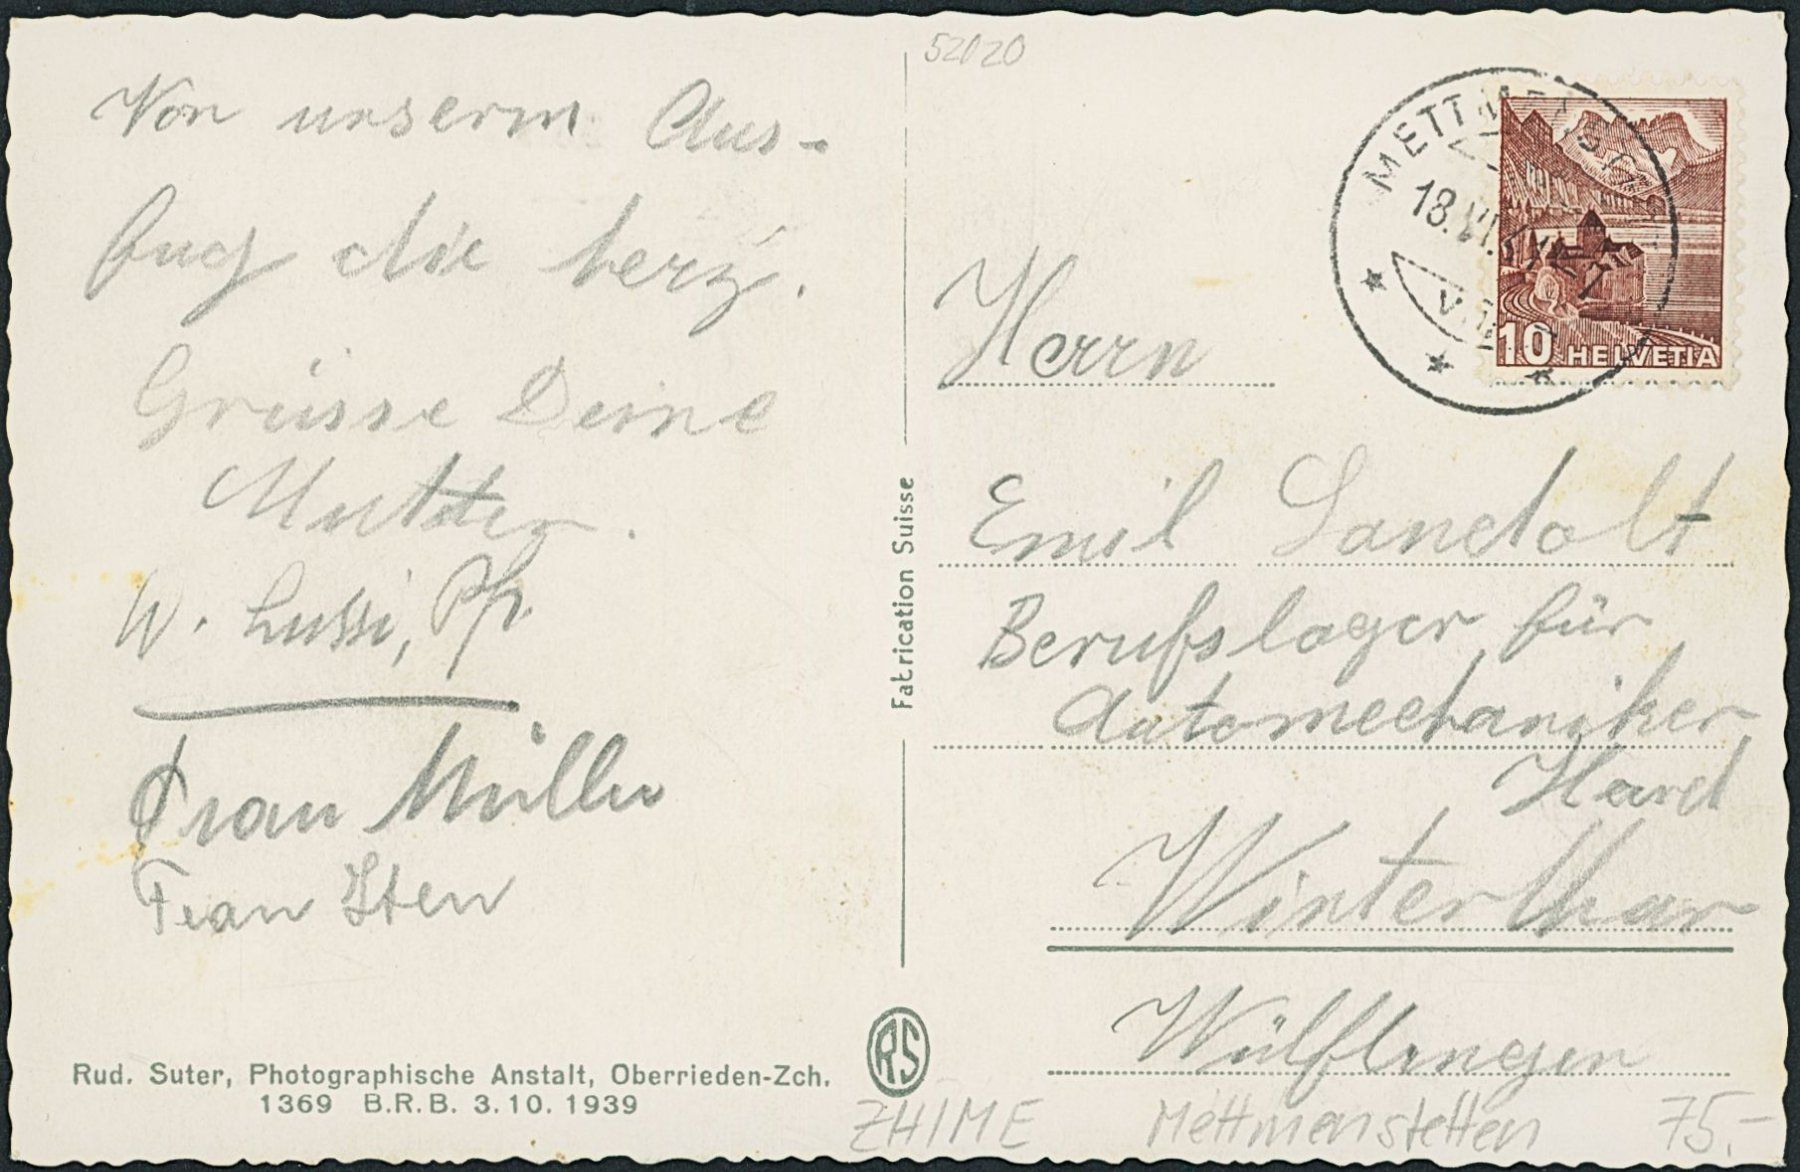 Von unserm Aus-
flug die herz.
Grüsse Deine
Mutter.
W. Lussi, Pfr.
Frau Müller
Frau Iten
Rud. Suter, Photographische Anstalt, Oberrieden-Zch.
1369 B.R.B. 3.10.1939
Fabrication Suisse
RS
52020
METTMENSTETTEN
18.VI.
10 HELVETIA
Herrn
Emil Landolt
Berufslager für
Automechaniker
Hard
Winterthur
Wülflingen
ZH/ME Mettmenstetten 75.-